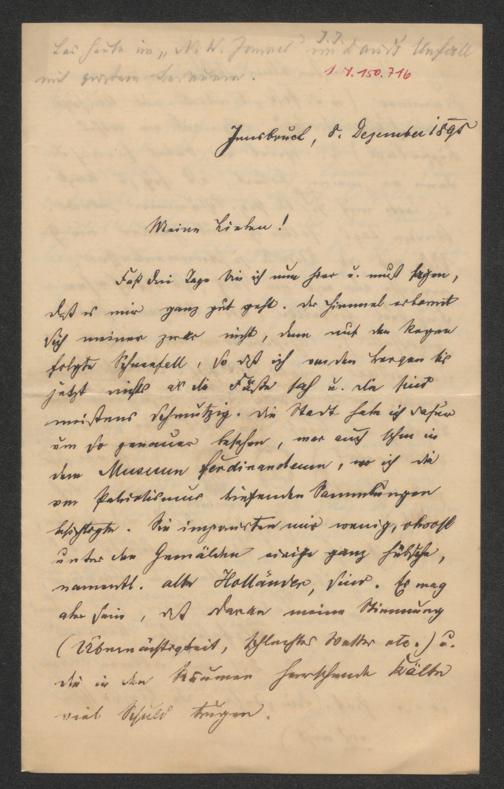 Las heute im „N. W. Journal" und auch Unfall
mit
I.N. 150.716
Innsbruck, 8. Dezember 1895
Meine Lieben!
Fast drei Tage bin ich nun hier u. muß sagen,
daß es mir ganz gut geht. Der Himmel erbarmt
sich meiner zwar nicht, denn auf den Regen
folgte Schneefall, so daß ich von den Bergen bis
jetzt nichts als die Füße sah u. die sind
meistens schmutzig. Die Stadt habe ich dafür
um so genauer besehen, war auch schon in
dem Museum Ferdinandeum, wo ich die
von Patriotismus triefenden Sammlungen
besichtigte. Sie imponirten mir wenig, obwohl
unter den Gemälden einige ganz hübsche,
namentl. alte Holländer, sind. Es mag
aber sein, daß daran meine Stimmung
(Übernächtigkeit, schlechtes Wetter etc.) u.
die in den Räumen herrschende Kälte
viel Schuld trugen.